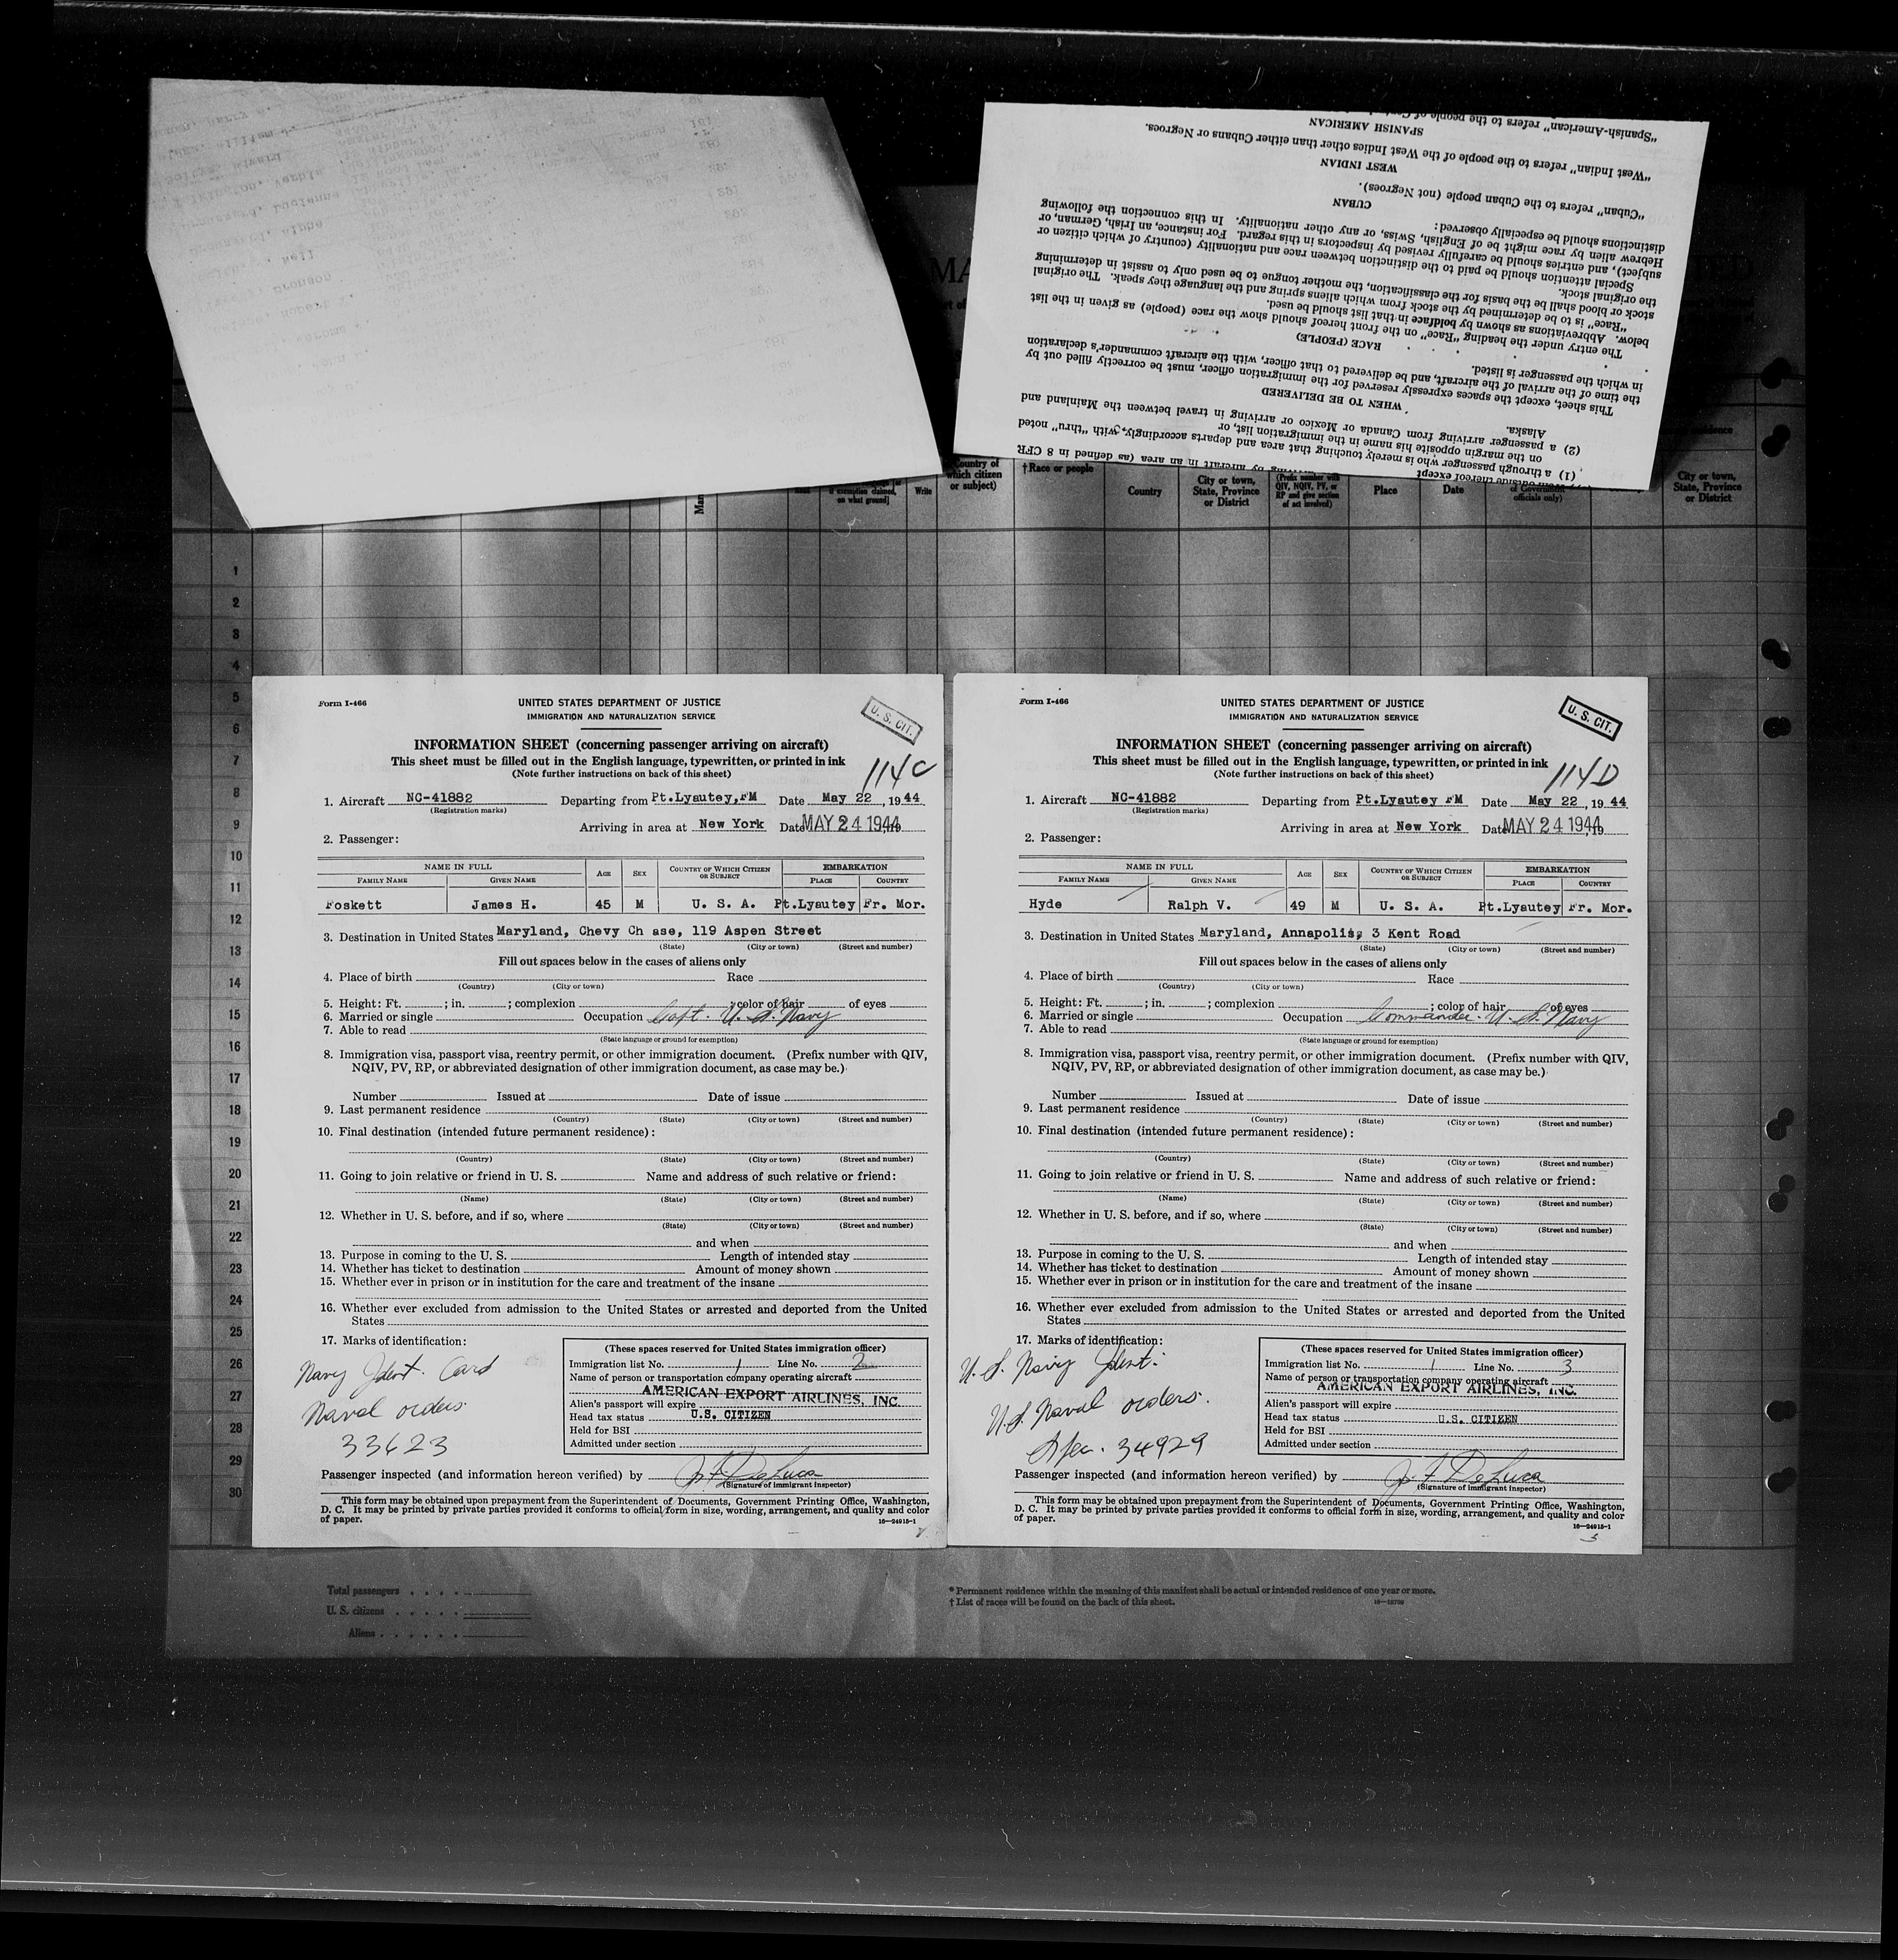 "Spanish-American" refers to the people of
SPANISH AMERICAN
"West Indian" refers to the people of the West Indies other than either Cubans or Negroes.
WEST INDIAN
"Cuban" refers to the Cuban people (not Negroes).
CUBAN
distinctions should be especially observed:
Hebrew alien by race might be of English, Swiss, or any other nationality. In this connection the following
subject), and entries should be carefully revised by inspectors in this regard. For instance, an Irish, German, or
Special attention should be paid to the distinction between race and nationality (country of which citizen or
the original stock.
stock or blood shall be the basis for the classification, the mother tongue to be used only to assist in determining
"Race" is to be determined by the stock from which aliens spring and the language they speak. The original
below. Abbreviations as shown by boldface in that list should be used.
The entry under the heading "Race" on the front hereof should show the race (people) as given in the list
RACE (PEOPLE)
in which the passenger is listed.
the time of the arrival of the aircraft, and be delivered to that officer, with the aircraft commander's declaration
This sheet, except the spaces expressly reserved for the immigration officer, must be correctly filled out by
WHEN TO BE DELIVERED
Alaska.
(2) a passenger arriving from Canada or Mexico or arriving in travel between the Mainland and
on the margin opposite his name in the immigration list, or
(1) a through passenger who is merely touching that area and departs accordingly, with "thru" noted
outside thereof except
by aircraft in an area (as defined in 8 CFR
on what ground]
Write
Country of which citizen or subject)
†Race or people
Country
City or town, State, Province or District
(Prefix number with QIV, NQIV, PV, or RP and give section of act involved)
Place
Date
of Government officials only)
City or town, State, Province or District
1
2
3
4
5
6
7
8
9
10
11
12
13
14
15
16
17
18
19
20
21
22
23
24
25
26
27
28
29
30
Form I-466
UNITED STATES DEPARTMENT OF JUSTICE
IMMIGRATION AND NATURALIZATION SERVICE
U. S. CIT.
INFORMATION SHEET (concerning passenger arriving on aircraft)
This sheet must be filled out in the English language, typewritten, or printed in ink
(Note further instructions on back of this sheet)
114C
1. Aircraft NC-41882 Departing from Pt.Lyautey,FM Date May 22, 1944
(Registration marks)
Arriving in area at New York Date MAY 24 1944
2. Passenger:
NAME IN FULL AGE SEX COUNTRY OF WHICH CITIZEN OR SUBJECT EMBARKATION
FAMILY NAME GIVEN NAME PLACE COUNTRY
Foskett James H. 45 M U. S. A. Pt.Lyautey Fr. Mor.
3. Destination in United States Maryland, Chevy Ch ase, 119 Aspen Street
(State) (City or town) (Street and number)
Fill out spaces below in the cases of aliens only
4. Place of birth Race
(Country) (City or town)
5. Height: Ft. ; in. ; complexion ; color of hair of eyes
6. Married or single Occupation Capt. U. S. Navy
7. Able to read
(State language or ground for exemption)
8. Immigration visa, passport visa, reentry permit, or other immigration document. (Prefix number with QIV,
NQIV, PV, RP, or abbreviated designation of other immigration document, as case may be.)
Number Issued at Date of issue
9. Last permanent residence
(Country) (State) (City or town) (Street and number)
10. Final destination (intended future permanent residence):
(Country) (State) (City or town) (Street and number)
11. Going to join relative or friend in U. S. Name and address of such relative or friend:
(Name) (State) (City or town) (Street and number)
12. Whether in U. S. before, and if so, where
(State) (City or town) (Street and number)
and when
13. Purpose in coming to the U. S. Length of intended stay
14. Whether has ticket to destination Amount of money shown
15. Whether ever in prison or in institution for the care and treatment of the insane
16. Whether ever excluded from admission to the United States or arrested and deported from the United
States
17. Marks of identification:
Navy Ident. Card
Naval orders
33623
(These spaces reserved for United States immigration officer)
Immigration list No. 1 Line No. 2
Name of person or transportation company operating aircraft
AMERICAN EXPORT AIRLINES, INC.
Alien's passport will expire
Head tax status U.S. CITIZEN
Held for BSI
Admitted under section
Passenger inspected (and information hereon verified) by J. F. DeLuca
(Signature of immigrant inspector)
This form may be obtained upon prepayment from the Superintendent of Documents, Government Printing Office, Washington,
D. C. It may be printed by private parties provided it conforms to official form in size, wording, arrangement, and quality and color
of paper.
16—24915-1
Form I-466
UNITED STATES DEPARTMENT OF JUSTICE
IMMIGRATION AND NATURALIZATION SERVICE
U. S. CIT.
INFORMATION SHEET (concerning passenger arriving on aircraft)
This sheet must be filled out in the English language, typewritten, or printed in ink
(Note further instructions on back of this sheet)
114D
1. Aircraft NC-41882 Departing from Pt.Lyautey FM Date May 22, 1944
(Registration marks)
Arriving in area at New York Date MAY 24 1944
2. Passenger:
NAME IN FULL AGE SEX COUNTRY OF WHICH CITIZEN OR SUBJECT EMBARKATION
FAMILY NAME GIVEN NAME PLACE COUNTRY
Hyde Ralph V. 49 M U. S. A. Pt.Lyautey Fr. Mor.
3. Destination in United States Maryland, Annapolis, 3 Kent Road
(State) (City or town) (Street and number)
Fill out spaces below in the cases of aliens only
4. Place of birth Race
(Country) (City or town)
5. Height: Ft. ; in. ; complexion ; color of hair of eyes
6. Married or single Occupation Commander. U. S. Navy
7. Able to read
(State language or ground for exemption)
8. Immigration visa, passport visa, reentry permit, or other immigration document. (Prefix number with QIV,
NQIV, PV, RP, or abbreviated designation of other immigration document, as case may be.)
Number Issued at Date of issue
9. Last permanent residence
(Country) (State) (City or town) (Street and number)
10. Final destination (intended future permanent residence):
(Country) (State) (City or town) (Street and number)
11. Going to join relative or friend in U. S. Name and address of such relative or friend:
(Name) (State) (City or town) (Street and number)
12. Whether in U. S. before, and if so, where
(State) (City or town) (Street and number)
and when
13. Purpose in coming to the U. S. Length of intended stay
14. Whether has ticket to destination Amount of money shown
15. Whether ever in prison or in institution for the care and treatment of the insane
16. Whether ever excluded from admission to the United States or arrested and deported from the United
States
17. Marks of identification:
U. S. Navy Ident.
U. S. Naval orders.
34929
(These spaces reserved for United States immigration officer)
Immigration list No. 1 Line No. 3
Name of person or transportation company operating aircraft
AMERICAN EXPORT AIRLINES, INC.
Alien's passport will expire
Head tax status U.S. CITIZEN
Held for BSI
Admitted under section
Passenger inspected (and information hereon verified) by J. F. DeLuca
(Signature of immigrant inspector)
This form may be obtained upon prepayment from the Superintendent of Documents, Government Printing Office, Washington,
D. C. It may be printed by private parties provided it conforms to official form in size, wording, arrangement, and quality and color
of paper.
16—24915-1
3
Total passengers
U. S. citizens
Aliens
* Permanent residence within the meaning of this manifest shall be actual or intended residence of one year or more.
† List of races will be found on the back of this sheet.